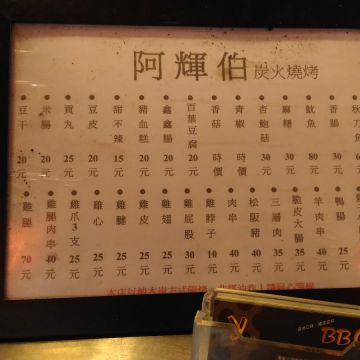 阿輝伯 炭火燒烤
豆干 20元
米腸 20元
貢丸 25元
豆皮 20元
甜不辣 15元
豬血糕 20元
鑫鑫腸 20元
百葉豆腐 20元
香菇 時價
青椒 時價
杏鮑菇 30元
麻糬 30元
魷魚 80元
香腸 30元
雞腿 70元
雞腿肉串 40元
雞爪3支 25元
雞心 25元
雞腱 25元
雞皮 25元
雞翅 25元
雞屁股 30元
雞脖子 10元
肉串 40元
松阪豬 40元
三層肉 35元
脆皮大腸
羊肉串
鴨腸
BB